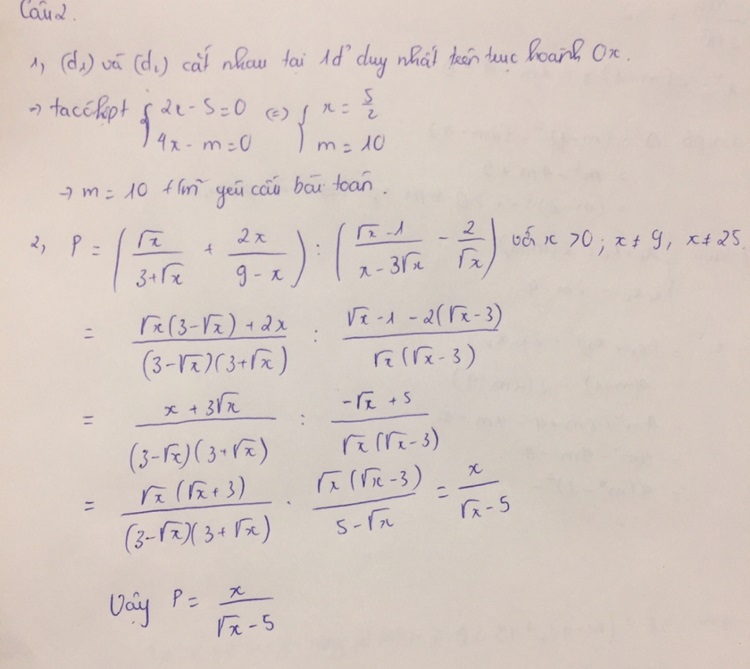 Câu 2.
1, (d₁) và (d₂) cắt nhau tại 1đ' duy nhất trên trục hoành Ox.
→ ta có hpt { 2x - 5 = 0 ; 4x - m = 0 (=) { x = 5/2 ; m = 10
→ m = 10 t/m yêu cầu bài toán.
2, P = ( √x/(3+√x) + 2x/(9-x) ) : ( (√x-1)/(x-3√x) - 2/√x ) với x >0 ; x ≠ 9, x ≠ 25.
= (√x(3-√x)+2x)/((3-√x)(3+√x)) : (√x-1-2(√x-3))/(√x(√x-3))
= (x+3√x)/((3-√x)(3+√x)) : (-√x+5)/(√x(√x-3))
= (√x(√x+3))/((3-√x)(3+√x)) . (√x(√x-3))/(5-√x) = x/(√x-5)
Vậy P = x/(√x-5)